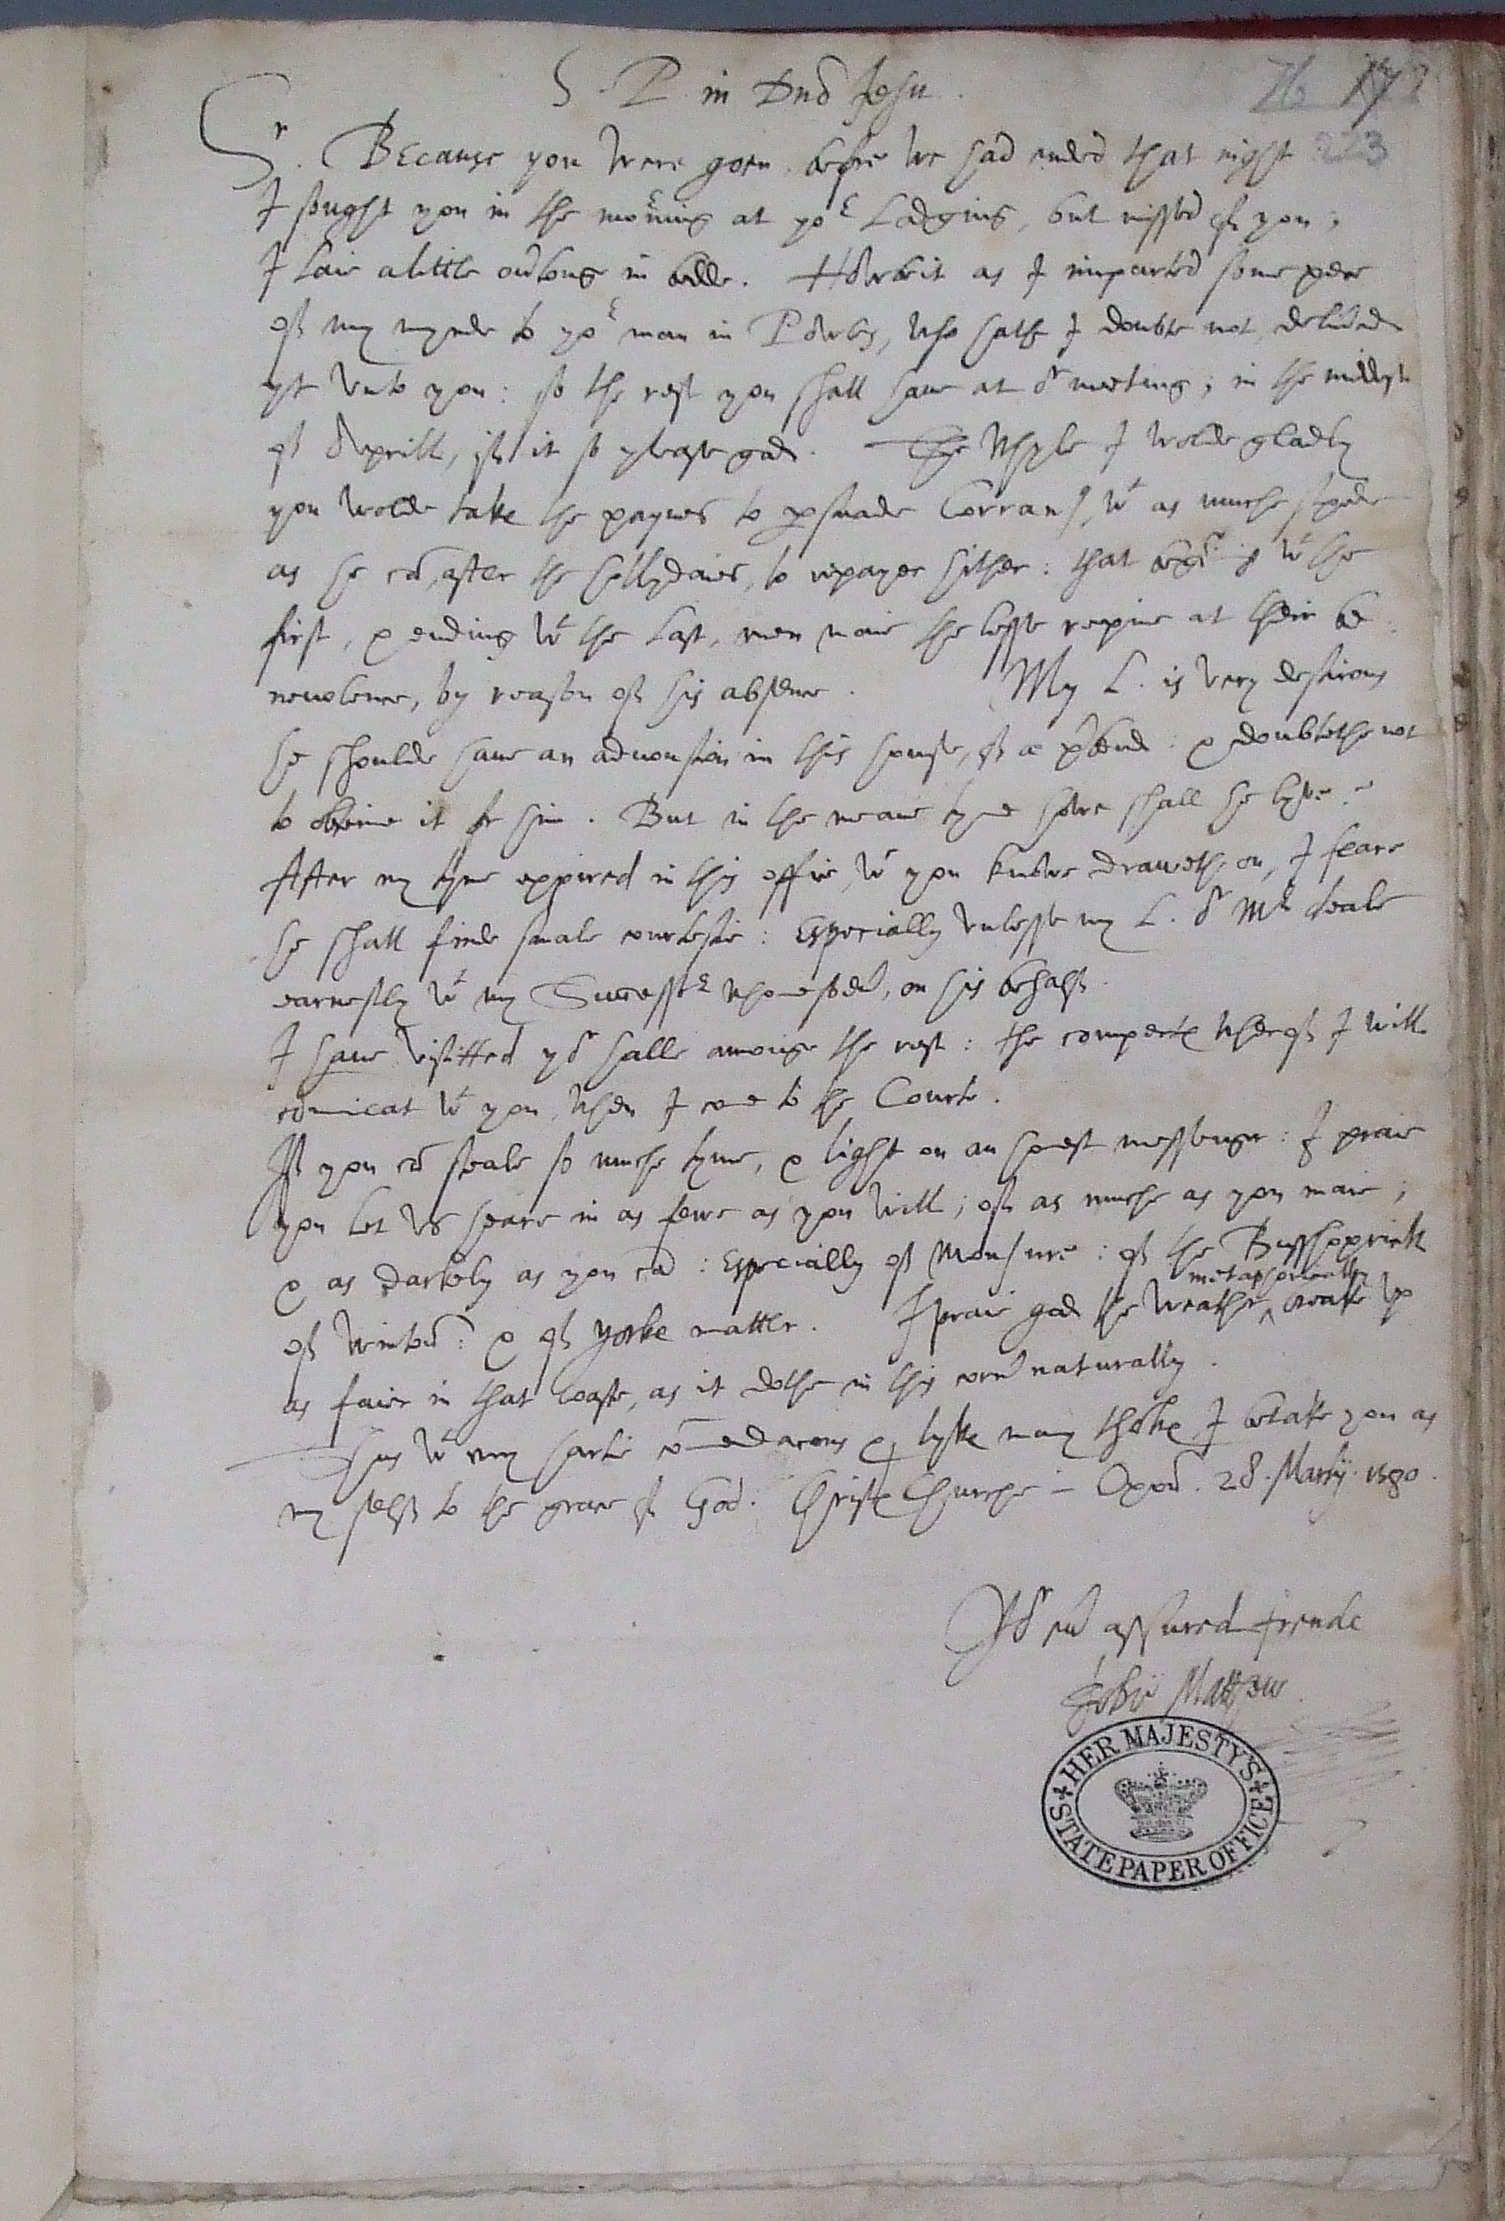 S. P. in Dno Jesu.
76 17
223
Sr. Because you were goen before we had ended that night
I sought you in the morning at yor Lodgins, but missed of you;
I laie a litle ou'longe in bedde. Howbeit as I imparted some pece
of my mynde to yor man in Powles, who hath I doubte not, deliu'ed
yt unto you: so the rest you shall haue at or meeting; in the middest
of Aprill, if it so please god. The whyle I wolde gladly
you wolde take the paynes to p'suade Corran', wt as muche spede
as he ca, after the hollydaies, to repayer hither: that wt the
first, & ending wt the last, men maie the lesse repine at their be:
neuolence, by reason of his absence. My L. is very desirous
he shoulde haue an aduousion in this house, of a p'bend: & doubtethe not
to obteine it for him. But in the meane tyme howe shall he lyve?
After my tyme expired in this office, wc you knowe drawethe on, I feare
he shall finde smale courtesie: Especially unlesse my L. or Mr deale
earnestly wt my Successor whomesoeu', on his behalf.
I haue visitted yor halle amonge the rest: the comperte wherof I will
comunicat wt you, when I come to the Courte.
If you ca steale so muche tyme, & light on an honest messenger: I praie
you let us heare in as fewe as you will; of as muche as you maie;
& as darkely as you ca: Especially of Monsure: of the Bysshoprick
of Winton: & of yorke matter. I praie god the weather ^ metaphorically breake up
as faier in that coaste, as it dothe in this corn' naturally.
Thus wt my hartie comendacons & lyke many thankes I betake you as
my self to the grace of God. Christe Churche - Oxon. 28. Martij. 1580.
Yor eu' assured frende
Tobie Matthew
HER MAJESTY'S
STATE PAPER OFFICE